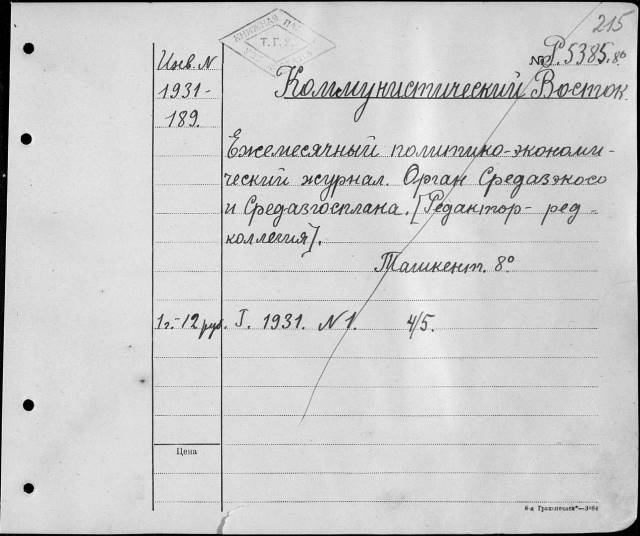 215
КНИЖНАЯ ПАЛАТА
Т.Г.К.
№ Р.5385.8°
Инв. N
1931-
189.
Коммунистический Восток.
Ежемесячный политико-экономи-
ческий журнал. Орган Средазэкосо
и Средазгосплана. [Редактор- ред-
коллегия].
Ташкент. 8°
1г.-12 руб. I. 1931. N 1. 4/5.
Цена